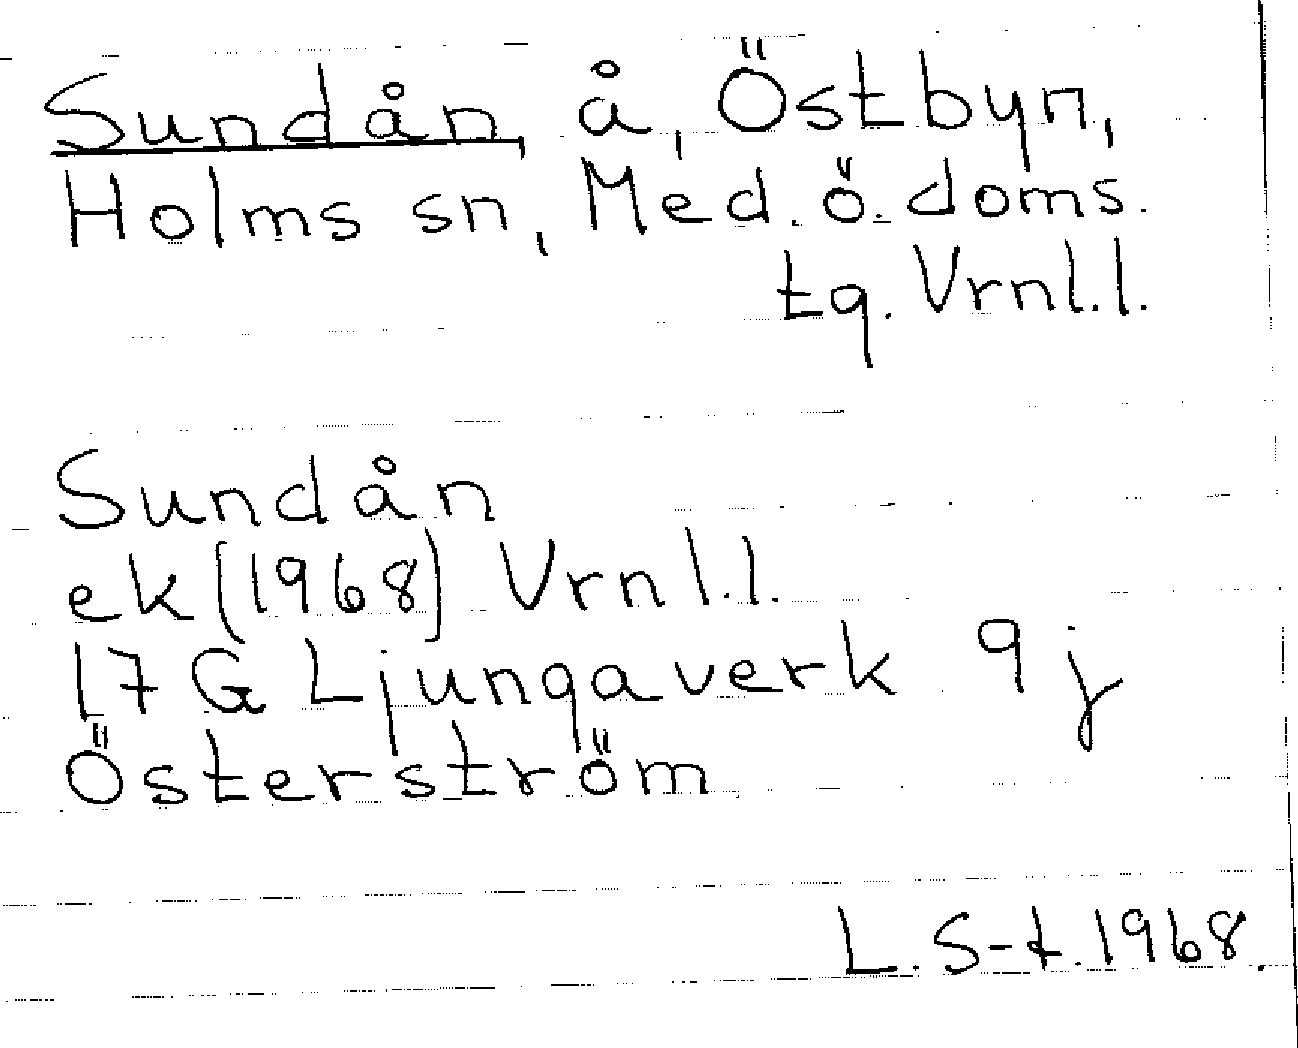 Sundån, å, Östbyn,
Holms sn, Med. ö. doms.
tg. Vrnl.l.
Sundån
ek (1968) Vrnl.l.
17 G Ljungaverk 9 j
Österström
L. S-t. 1968.